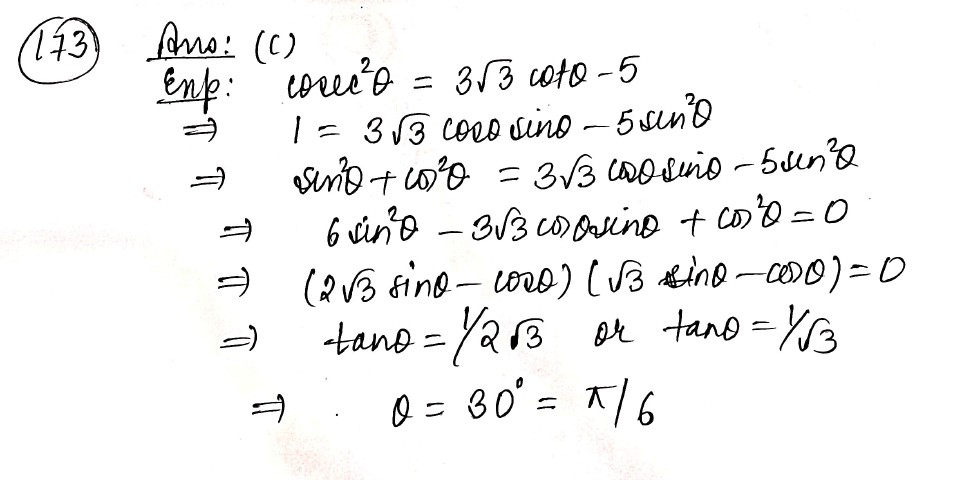 173 Ans: (C)
Exp: cosec²θ = 3√3 cotθ - 5
⇒ 1 = 3√3 cosθ sinθ - 5 sin²θ
⇒ sin²θ + cos²θ = 3√3 cosθ sinθ - 5 sin²θ
⇒ 6 sin²θ - 3√3 cosθ sinθ + cos²θ = 0
⇒ (2√3 sinθ - cosθ) (√3 sinθ - cosθ) = 0
⇒ tanθ = 1/2√3 or tanθ = 1/√3
⇒ θ = 30° = π/6